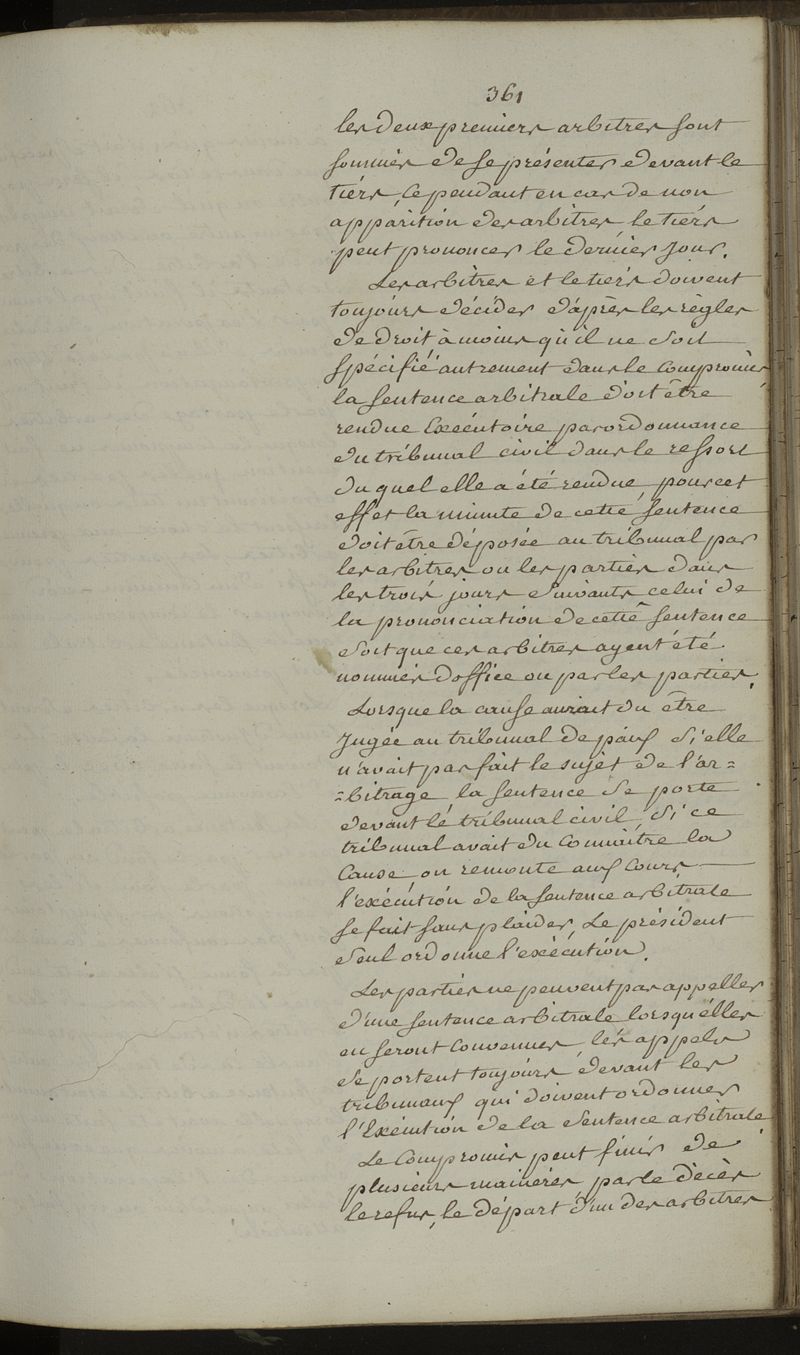 361
les deux premiers arbitres sont
sommés de se présenter devant le
tiérs, cependant en cas de non
appárition des arbitres, le tiérs
peut prononcer le dernier jour.
Les arbitres et le tiérs doivent
toujours décider d'après les règles
de droit à moins qu'il ne soit
spécifié autrement dans le compromis
la sentence arbitrale doit être
rendue Exécutoire par ordonnance
du tribunal civil dans le ressort
du quel elle a été rendue, pour cet
effet la minute de cette sentence
doit être déposée au tribunal par
les arbitres ou les parties dans
les trois jours suivants celui de
la prononciation de cette sentence
soit que ces arbitres ayent été
nommés d'office ou par les parties.
Lorsque la cause aurait du être
Jugée au tribunal de paix si elle
n'avait pas fait le sujet de l'ar=
=bitrage la sentence se porte
devant le tribunal civil, si ce
tribunal avait du connaitre la
Cause, on remonte aux Cours
l'exécution de la sentence arbitrale
se fait sans plaider, Le président
seul ordonne l'exécution.
Les parties ne peuvent pas appeller
d'une sentence arbitrale lorsqu'élles
en seront convenues, les appels
se portent toujours devant les
tribunaux qui doivent ordonner
l'Exécution de la sentence arbitrale.
Le Compromis peut finir de
plusieurs manières, par le décès
le refus, le départ d'un des arbitres